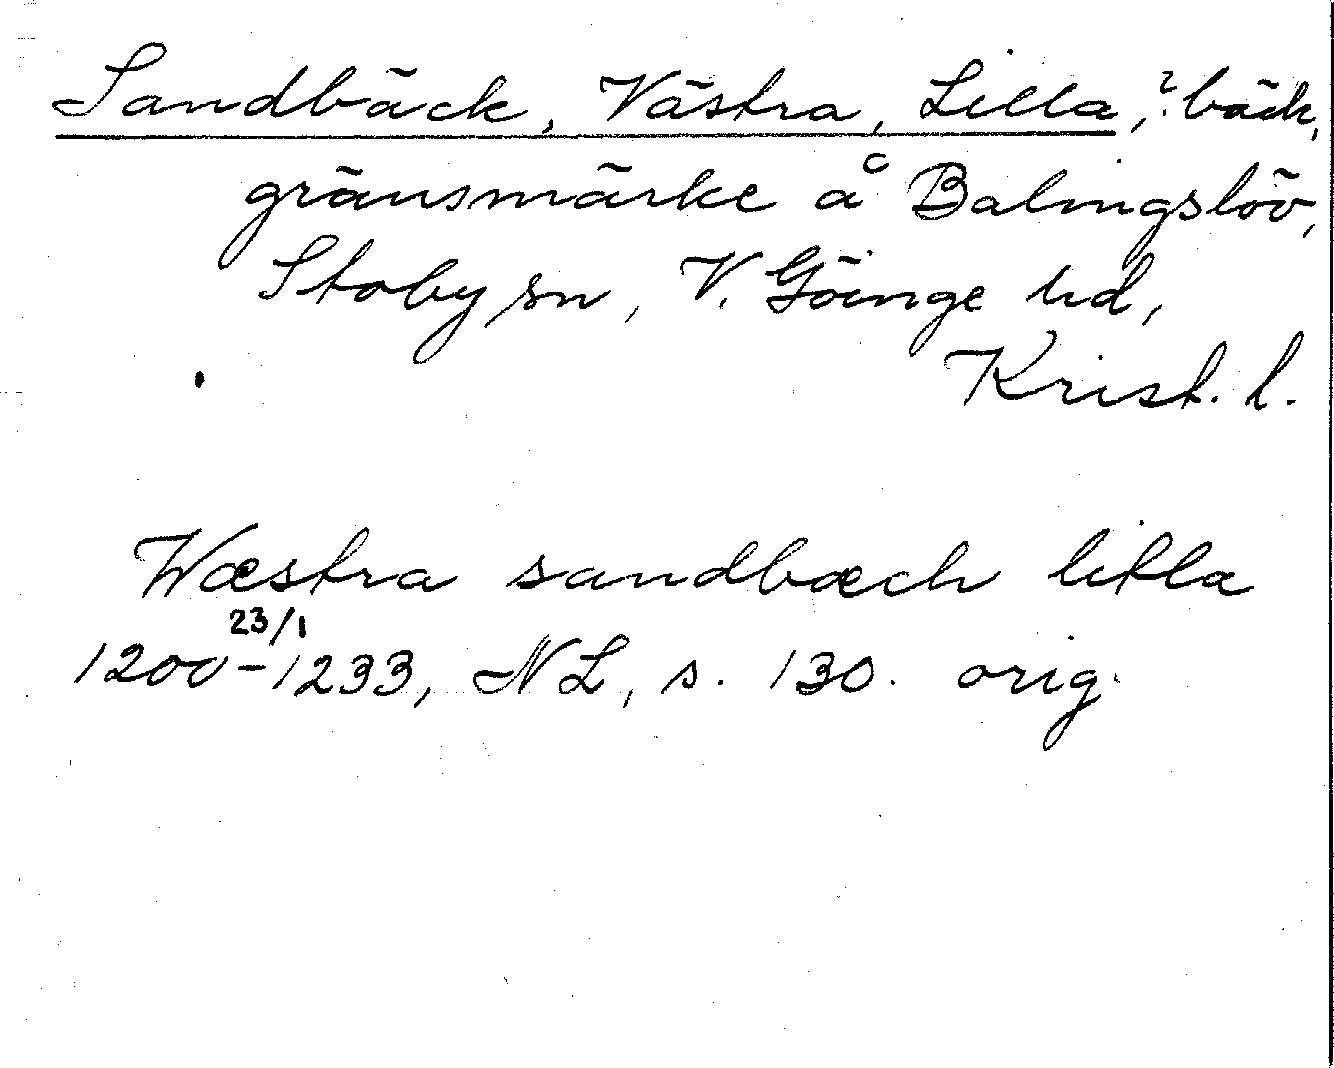 Sandbäck, Västra, Lilla, ? bäck,
gränsmärke å Balingslöv,
Stoby sn, V. Göinge hd,
Krist. l.
Wæstra sandbæch litla
23/1
1200-1233, NL, s. 130. orig.